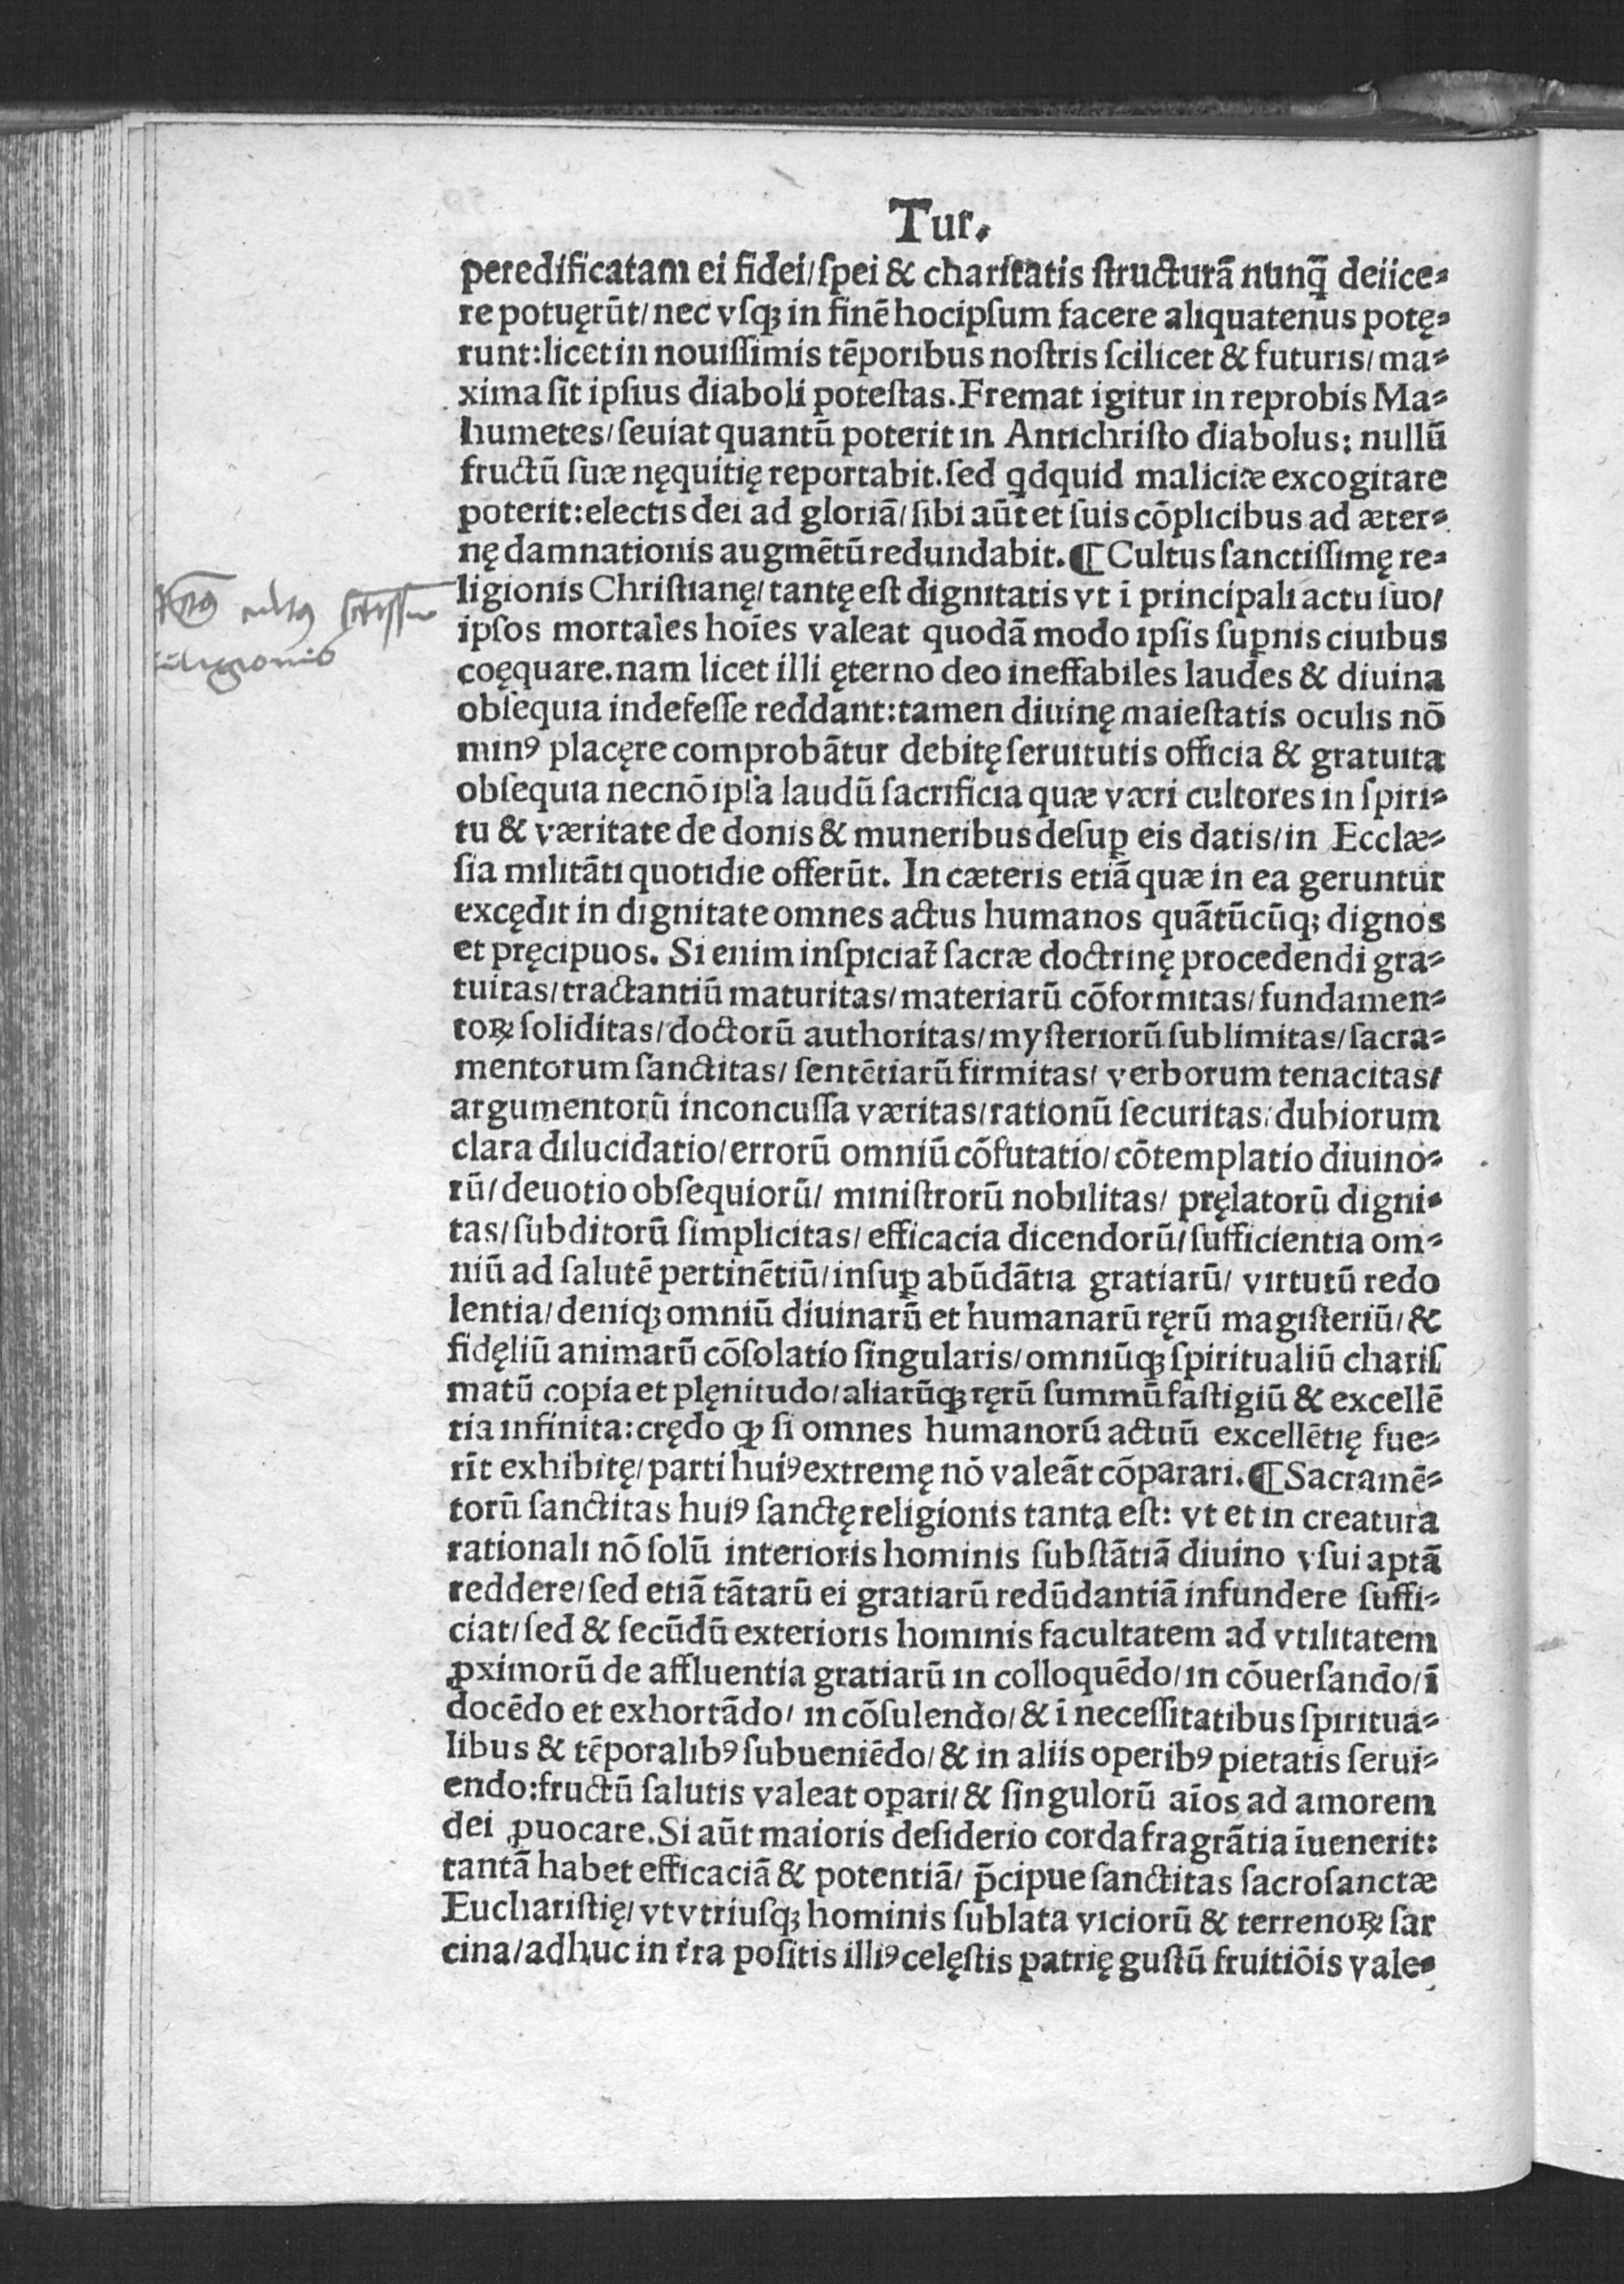 Tuſ.
peredificatam ei fidei/ſpei & charitatis ſtructurā nunq̄ deiice⸗
re potuęrūt/nec vſq; in finē hocipſum facere aliquatenus potę⸗
runt:licet in nouiſſimis tēporibus noſtris ſcilicet & futuris/ma⸗
xima ſit ipſius diaboli poteſtas.Fremat igitur in reprobis Ma⸗
humetes/ſeuiat quantū poterit in Antichriſto diabolus: nullū
fructū ſuæ nęquitię reportabit.ſed qdquid maliciæ excogitare
poterit:electis dei ad gloriā/ſibi aūt et ſuis cōplicibus ad æter⸗
nę damnationis augmētū redundabit.¶Cultus ſanctiſſimę re⸗
ligionis Chriſtianę/tantę eſt dignitatis vt ī principali actu ſuo/
ipſos mortales hoīes valeat quodā modo ipſis ſuꝑnis ciuibus
coęquare.nam licet illi ęterno deo ineffabiles laudes & diuina
obſequia indefeſſe reddant:tamen diuinę maieſtatis oculis nō
minꝰ placęre comprobātur debitę ſeruitutis officia & gratuita
obſequia necnō ipſa laudū ſacrificia quæ væri cultores in ſpiri⸗
tu & væritate de donis & muneribus deſuꝑ eis datis/in Ecclæ⸗
ſia militāti quotidie offerūt. In cæteris etiā quæ in ea geruntur
excędit in dignitate omnes actus humanos quātūcūq; dignos
et pręcipuos. Si enim inſpiciat᷑ ſacræ doctrinę procedendi gra⸗
tuitas/tractantiū maturitas/materiarū cōformitas/fundamen⸗
toꝝ ſoliditas/doctorū authoritas/myſteriorū ſublimitas/ſacra⸗
mentorum ſanctitas/ ſentētiarū firmitas/ verborum tenacitas/
argumentorū inconcuſſa væritas/rationū ſecuritas/dubiorum
clara dilucidatio/errorū omniū cōfutatio/cōtemplatio diuino⸗
rū/deuotio obſequiorū/ miniſtrorū nobilitas/ pręlatorū digni⸗
tas/ſubditorū ſimplicitas/efficacia dicendorū/ſufficientia om⸗
niū ad ſalutē pertinētiū/inſuꝑ abūdātia gratiarū/ virtutū redo
lentia/deniq; omniū diuinarū et humanarū ręrū magiſteriū/&
fidęliū animarū cōſolatio ſingularis/omniūq; ſpiritualiū chariſ
matū copia et plęnitudo/aliarūq; ręrū ſummū faſtigiū & excellē
tia infinita:crędo ꝙ ſi omnes humanorū actuū excellētię fue⸗
rīt exhibitę/parti huiꝰ extremę nō valeāt cōparari.¶Sacramē⸗
torū ſanctitas huiꝰ ſanctę religionis tanta eſt: vt et in creatura
rationali nō ſolū interioris hominis ſubſtātiā diuino vſui aptā
reddere/ſed etiā tātarū ei gratiarū redūdantiā infundere ſuffi⸗
ciat/ſed & ſecūdū exterioris hominis facultatem ad vtilitatem
ꝓximorū de affluentia gratiarū in colloquēdo/in cōuerſando/ī
docēdo et exhortādo/ in cōſulendo/& ī neceſſitatibus ſpiritua⸗
libus & tēporalibꝰ ſubueniēdo/& in aliis operibꝰ pietatis ſerui⸗
endo:fructū ſalutis valeat oꝑari/& ſingulorū aīos ad amorem
dei ꝓuocare.Si aūt maioris deſiderio corda fragrātia īuenerit:
tantā habet efficaciā & potentiā/ p̄cipue ſanctitas ſacroſanctæ
Euchariſtię/vt vtriuſq; hominis ſublata viciorū & terrenoꝝ ſar
cina/adhuc in t᷑ra poſitis illiꝰ celęſtis patrię guſtū fruitiōis vale⸗
cultꝰ
religionis